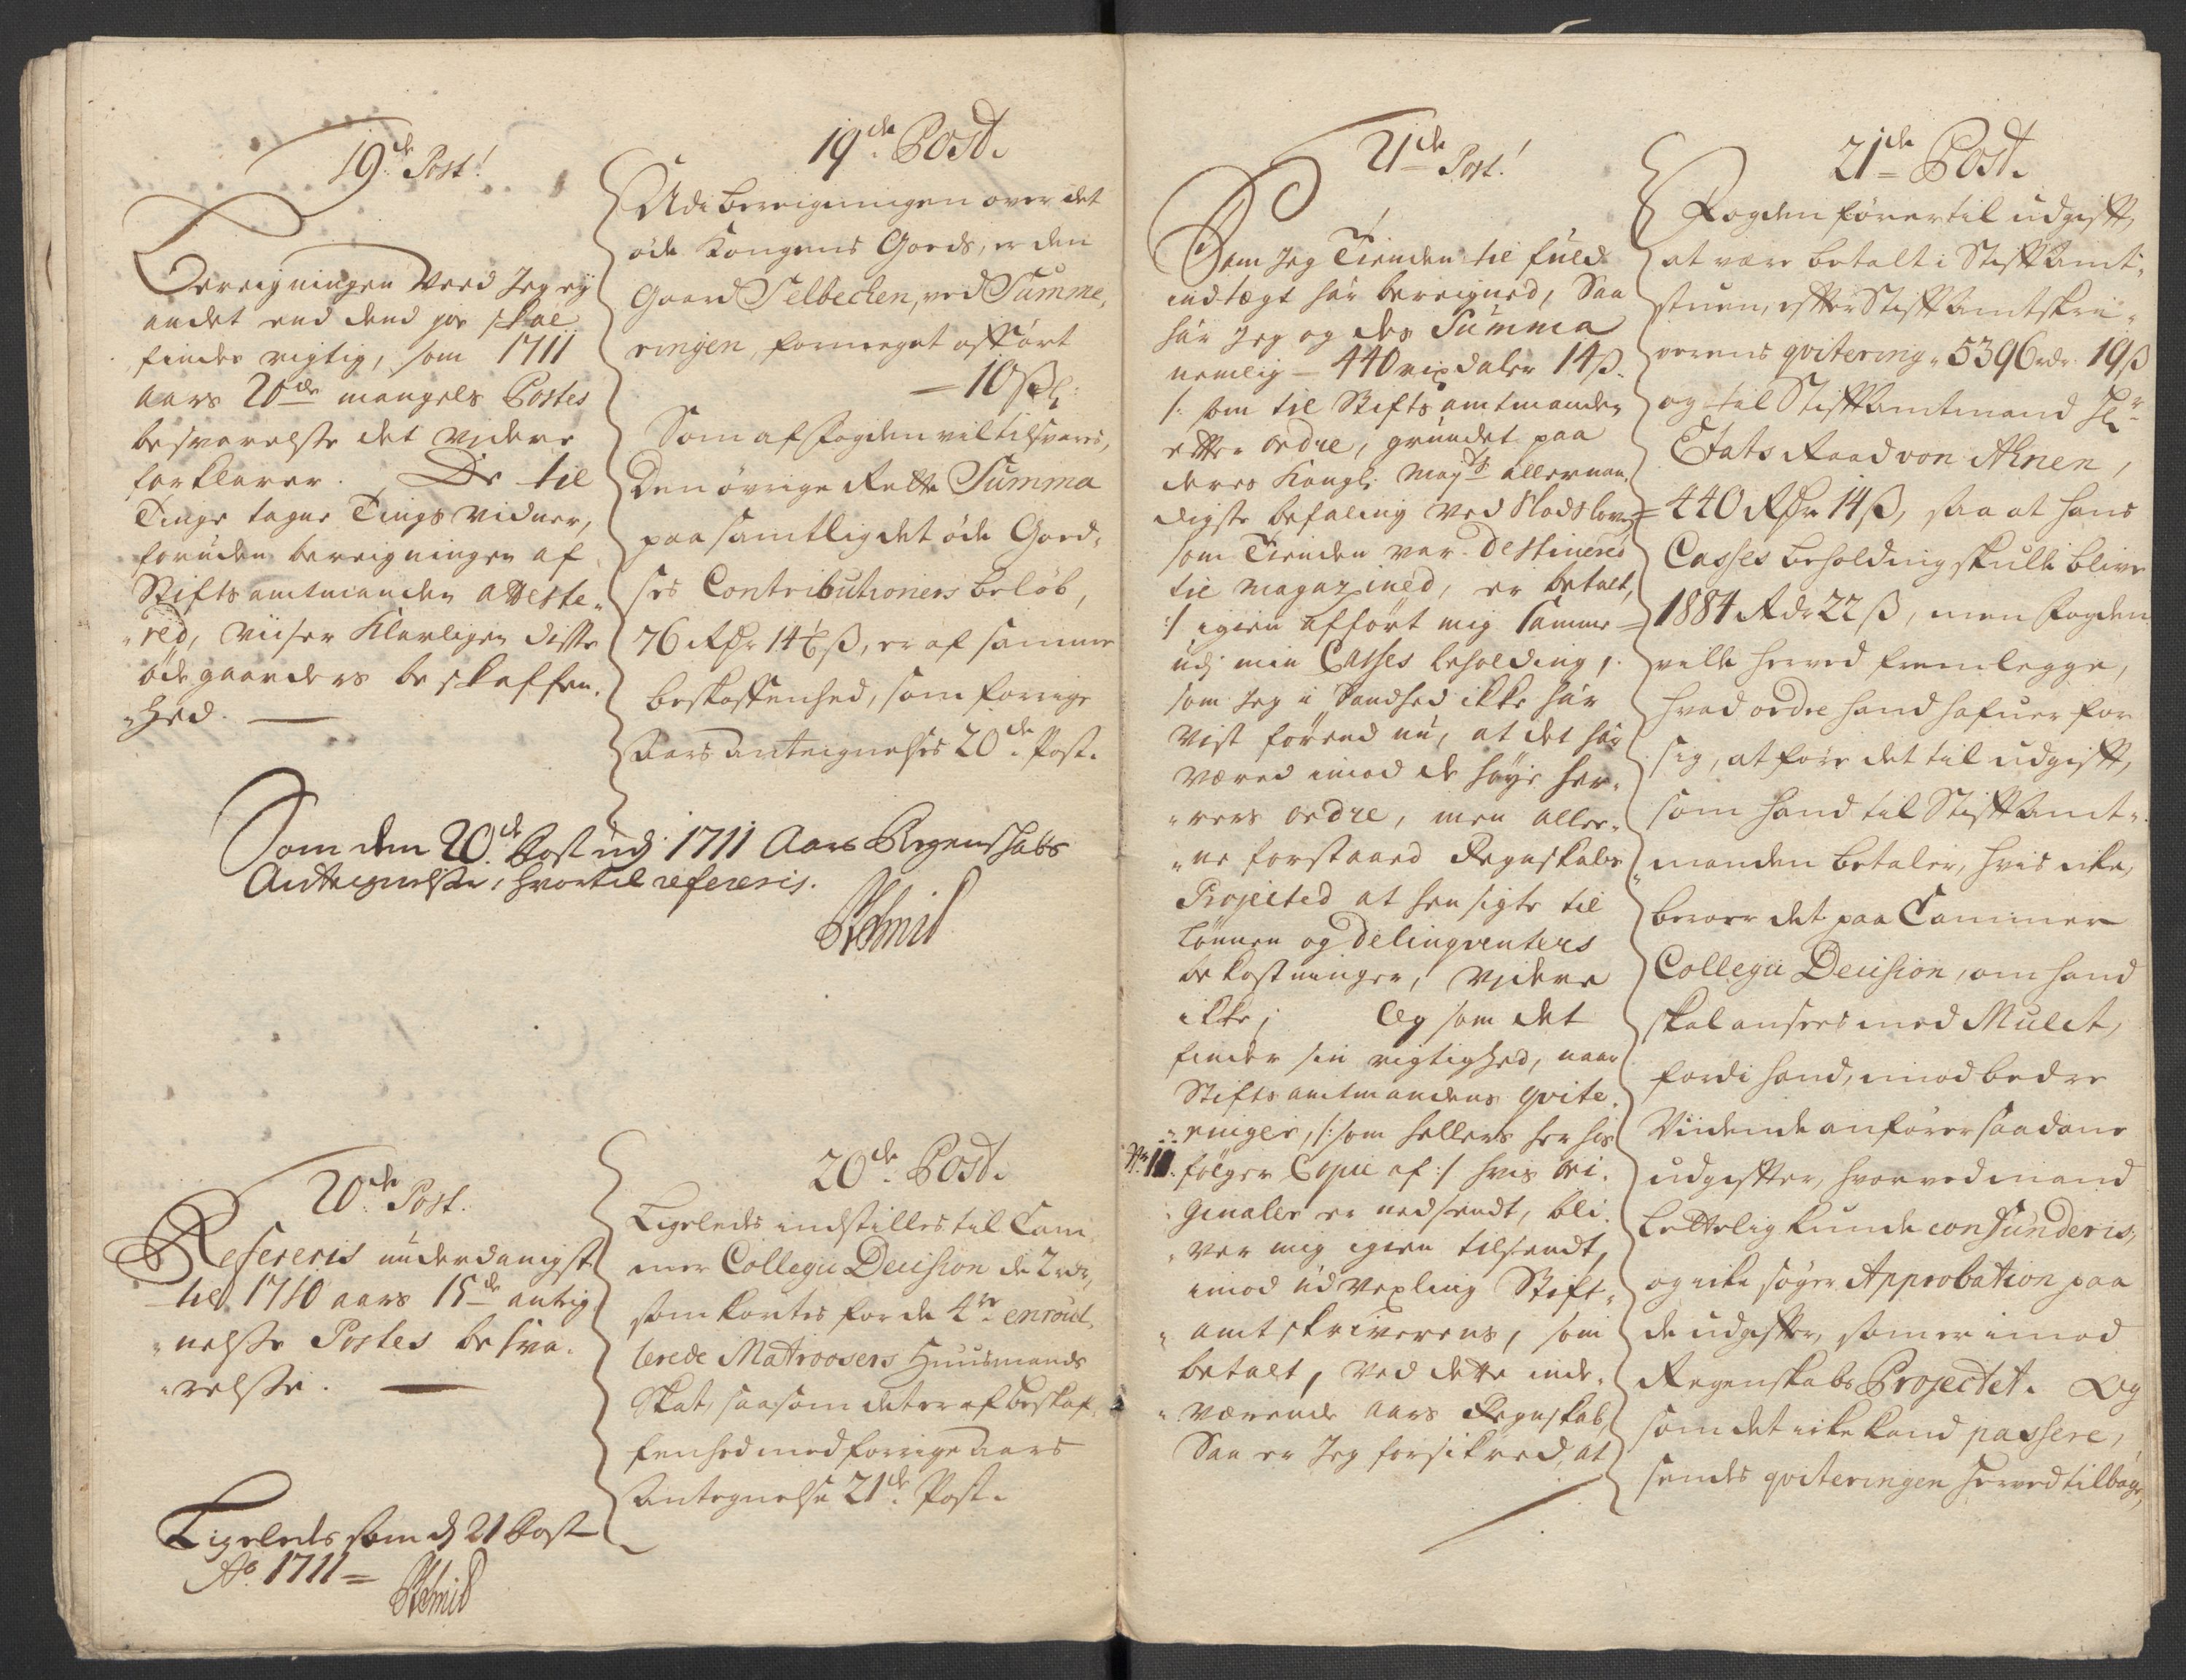 19de Post!
Bereigningen veed Jeg ej
andet end dend jo skal
findes rigtig, som 1711
aars 20de mangels Postes
besvarelsse det videre
forklarer. De til
Tinge tagne Tings vidner,
foruden bereigningen af
Stiftsamtmanden atteste-
red, viiser Klarligen disse
öde gaarders beskaffen-
hed.
19de Post.
Udi bereigningen over det
öde Kongens Goeds, er den
Gaard Selbechen, ved Summe-
ringen, formeget affört
10 ß
Som af Fogden vil tilsvares,
Den övrige Rette Summa
paa samtlig det öde Goed-
ses Contributioners belöb,
76 Rdr 14½ ß, er af samme
beskaffenhed, som forrige
Aars antegnelses 20de Post.
Som den 20de Post udj 1711 Aars Regenskabs
Antegnelsse, hvortil refereris.
20de Post.
Refereris underdanigst
til 1710 aars 15de anteg-
nelsse Postes besva-
relsse.
20de Post.
Ligeledes indstilles til Cam-
mer Collegii Decision de 2 rdr,
som kortes for de 4re enroul-
lerede Matroosers Huusmands
Skat, saasom det er af beskaf-
fenhed med forrige Aars
Antegnelse 21de Post.
Ligeledes som d 21 Post
Ao 1711
21de Post!
Som Jeg Tienden til fuld
indtægt har bereigned, Saa
har Jeg og des Summa
nemlig 440 rixdaler 14 ß
/: som til Stiftsamtmanden
efter ordre, grundet paa
deres Kongl: Mayts allernaa-
digste befaling ved Slodsloven
som Tienden var destinered
til magazined, er betalt,
:/ igien afført mig samme
udj min Casses beholding,
som Jeg i Sandhed ikke har
vist förend nu, at det har
væred imod de høye her-
rers ordre, men aller-
ne forstaaed Regnskabs
Projected at hensigte til
Lönnen og delinqventers
bekostninger, videre
ikke; Og som det
finder sin rigtighed, naar
Stiftsamtmandens qvite-
ringer, /: som hellers her hos
No 11. følger Copie af :/ hvis ori-
ginaler er nedsendt, bli-
ver mig igien tilsendt,
imod udvexling Stift-
amtskriverens, som
betalt, ved dette inde-
værende aars Regnskab,
Saa er Jeg forsikred, at
21de Post.
Fogden förer til udgifft,
at være betalt i Stifftamt-
stuen, effter Stifftamtskri-
verens qvitering 5396 rdr 19 ß
og til Stifftamtmand Hr
Etats Raad von Ahnen,
440 Rdr 14 ß, saa at hans
Casses beholding skulle blive
1884 Rdr 22 ß, men Fogden
ville herved fremlegge,
hvad ordre hand hafuer for
sig, at före det til udgifft,
som hand til Stifftamt-
manden betaler, hvis icke,
beroer det paa Cammer
Collegii Decision, om hand
skal ansees med Mulct,
fordi hand, imod bedre
Vidende anförer saadane
udgiffter, hvorved mand
Lettelig kunde confunderis,
og icke søger Approbation paa
de udgiffter, som er imod
Regenskabs Projectet. Og
som det icke kand passere,
sendes qviteringen herved tilbage,